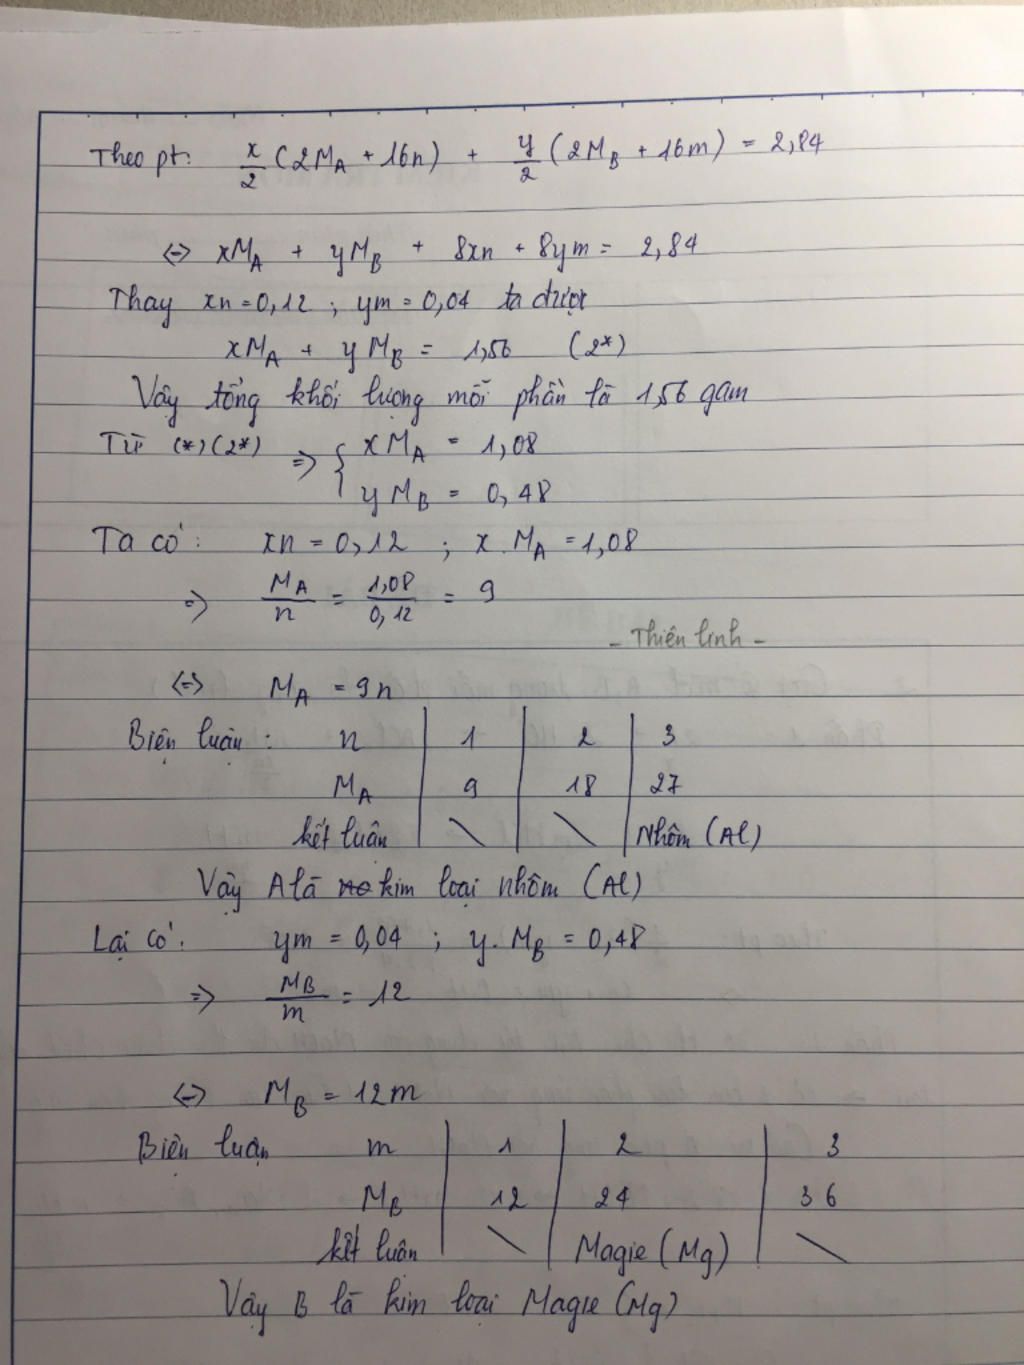 Theo pt: x/2 (2M_A + 16n) + y/2 (2M_B + 16m) = 2,84
<=> xM_A + yM_B + 8xn + 8ym = 2,84
Thay xn = 0,12 ; ym = 0,04 ta được
xM_A + yM_B = 1,56 (2*)
Vậy tổng khối lượng mỗi phần là 1,56 gam
Từ (*) (2*) => { xM_A = 1,08
yM_B = 0,48
Ta có: xn = 0,12 ; x.M_A = 1,08
=> M_A/n = 1,08/0,12 = 9
- Thiên linh -
<=> M_A = 9n
Biện luận: n | 1 | 2 | 3
M_A | 9 | 18 | 27
kết luận | \ | \ | Nhôm (Al)
Vậy A là kim loại nhôm (Al)
Lại có: ym = 0,04 ; y.M_B = 0,48
=> M_B/m = 12
<=> M_B = 12m
Biện luận m | 1 | 2 | 3
M_B | 12 | 24 | 36
kết luận | \ | Magie (Mg) | \
Vậy B là kim loại Magie (Mg)